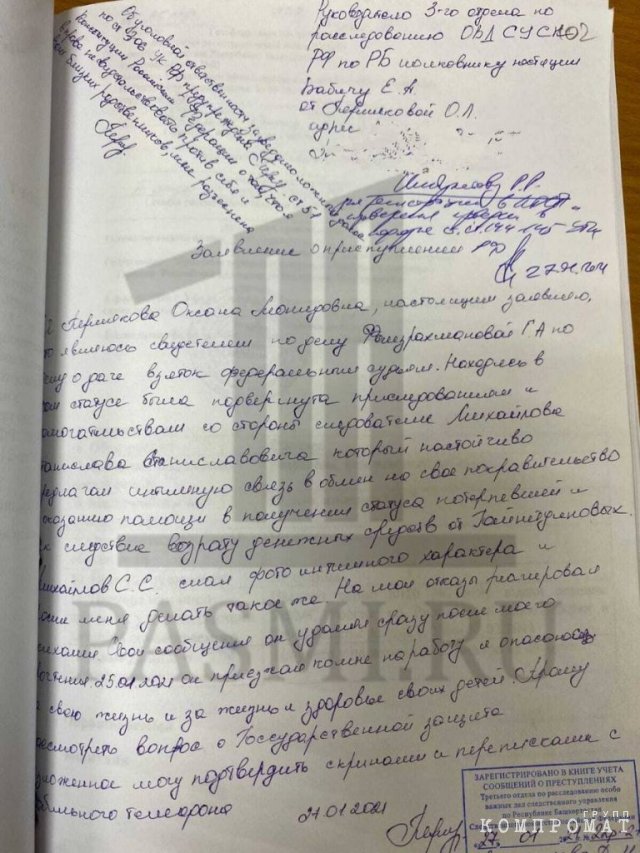 Руководителю 3-го отдела по
расследованию ОВД СУ СК
102
РФ по РБ полковнику юстиции
Бабичу Е.А.
от Пермяковой О.Л.
адрес
Об уголовной ответственности за заведомо ложный донос
по ст. 306 УК РФ предупреждена. Перм
ст. 51
Конституции Российской Федерации о том, что я
вправе не свидетельствовать против себя и
своих близких родственников, мне разъяснена
Перм
Р.Р.
для регистрации в
проведения проверки в
порядке с.с. 144-145 УПК
РФ
27.01.2021
Заявление о преступлении
Пермякова Оксана, настоящим заявляю,
являюсь свидетелем по делу Фаизрахмановой Г.А по
о даче взяток федеральным судьям. Находясь в
статусе была подвергнута преследованиям и
омогательствам со стороны следователя Михайлова
танислава Станиславовича который настойчиво
редлагал интимную связь в обмен на свое покравительство
оказанию помощи в получении статуса потерпевшей и
к следствие возрату денежных средств от Гайнетдиновых.
Михайлов С.С. слал фото интимного характера и
меня делать такое же На мои отказы реагировал
Свои сообщения он удалял сразу после моего
чтения 25.01.2021 он приезжал ко мне на работу я опасаюсь
свою жизнь и за жизнь и здоровье своих детей. Прошу
рассмотреть вопрос о Государственной защите
зложенное могу подтвердить скринами и переписками с
обильного телефона
27.01.2021
Перм
PASMI.RU
ЗАРЕГИСТРИРОВАНО В КНИГЕ УЧЕТА
СООБЩЕНИЙ О ПРЕСТУПЛЕНИЯХ
Третьего отдела по расследованию особо
важных дел следственного управления
по Республике Башкортостан
27 01 21
ГРУПП
КОМПРОМАТ